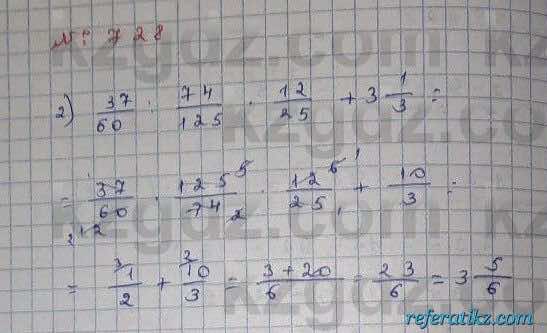 №: 728
2) 37/60 : 74/125 · 12/25 + 3 1/3 =
= 37/60 · 125/74 · 12/25 + 10/3 =
= 1/2 + 10/3 = 3+20/6 = 23/6 = 3 5/6
referatikz.com